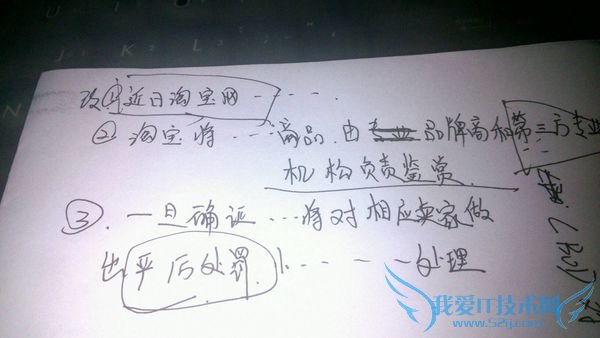 改①近日淘宝网……
②淘宝将……商品.由专业品牌商和第三方专业
机构负责鉴赏
③.一旦确证…将对相应卖家做
出严厉处罚.……处理
我爱IT技术网
www.52ij.com